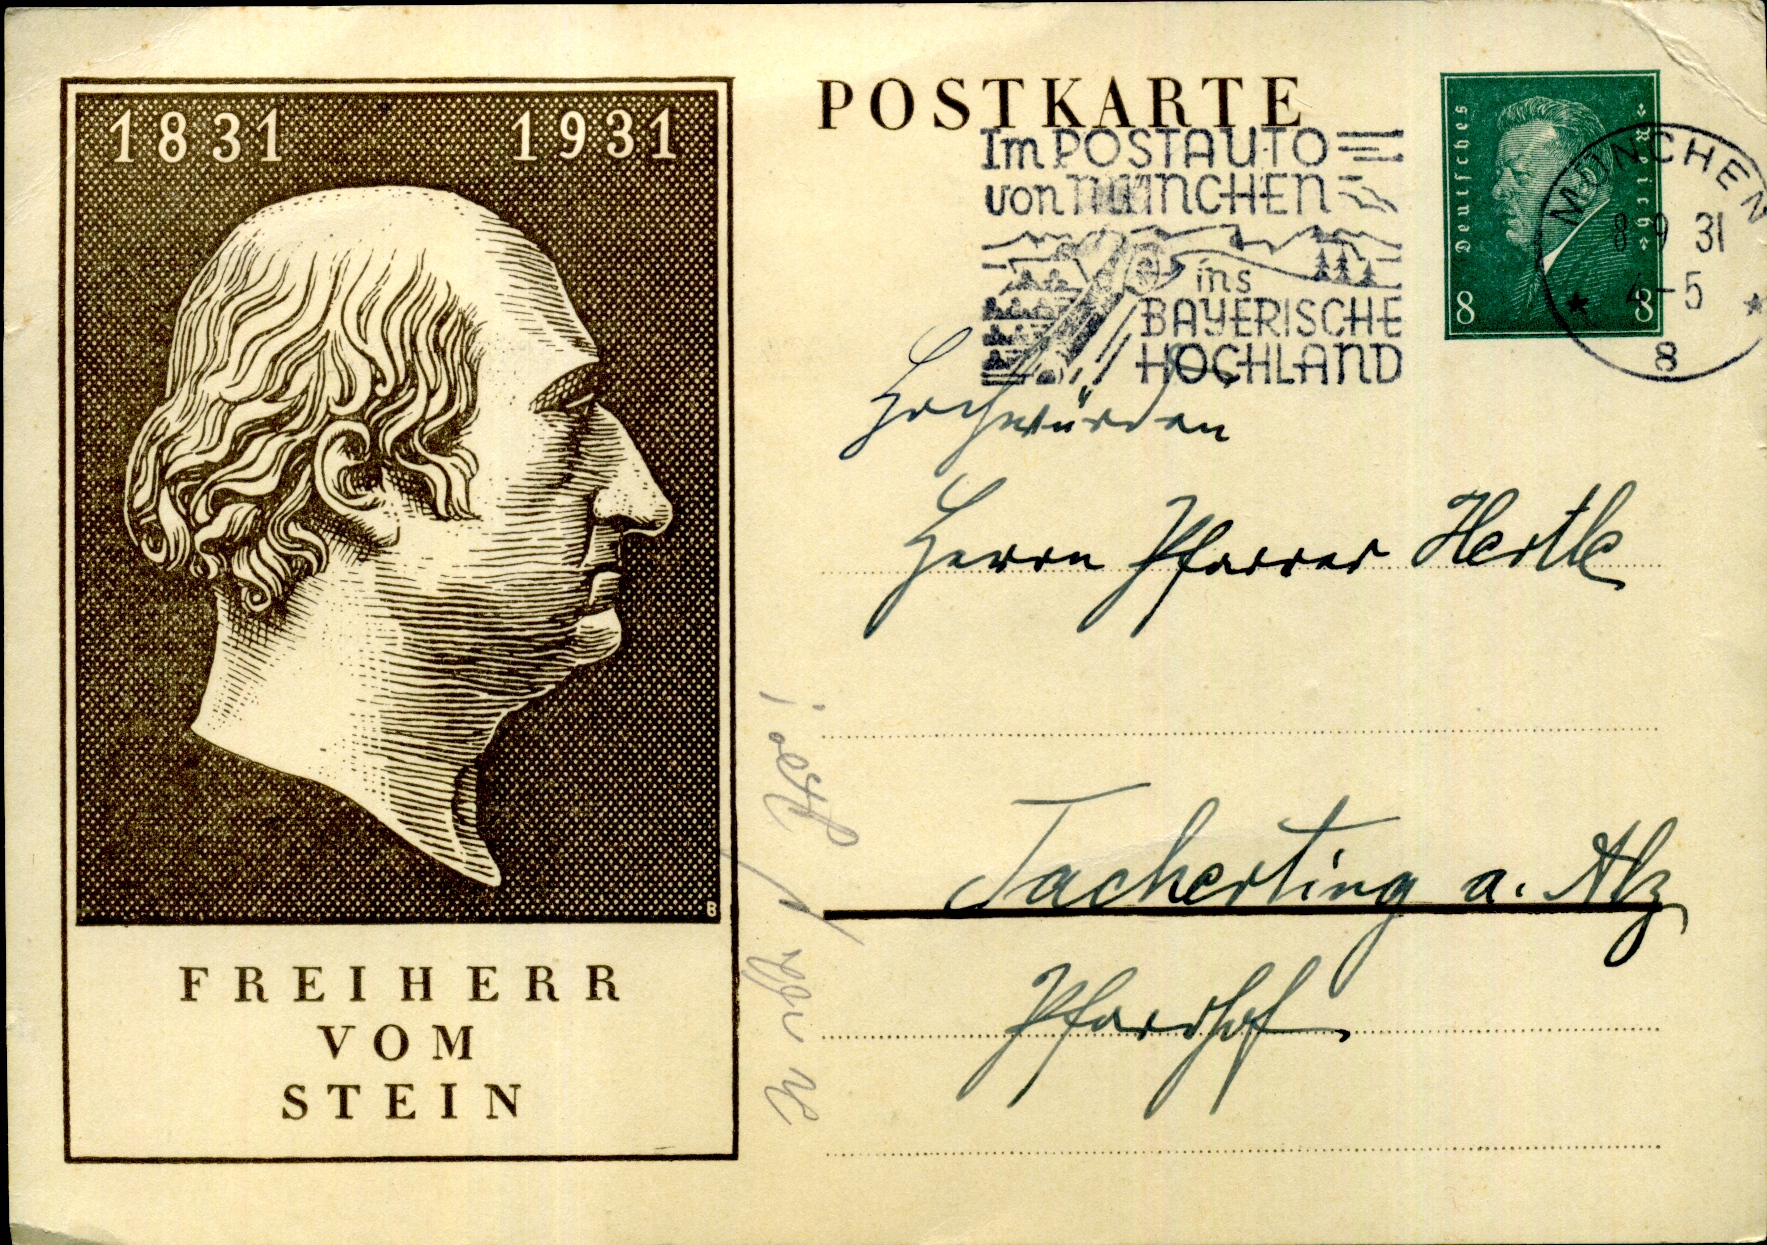 1831 1931
FREIHERR
VOM
STEIN
B
POSTKARTE
Im POSTAUTO
von MÜNCHEN
ins
BAYERISCHE
HOCHLAND
Deutsches Reich
8 8
MÜNCHEN
8 9 31
4-5
8
Hochwürden
Herrn Pfarrer Hertle
Tacherting a. Alz
Pfarrhof